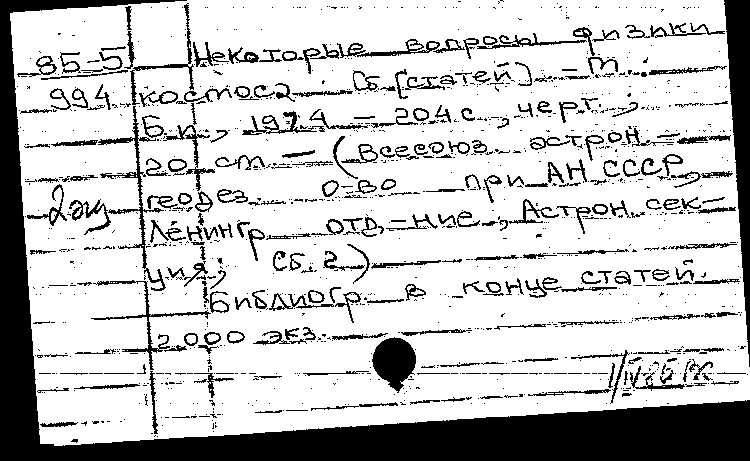 85-5 Некоторые вопросы физики
994 космоса. Сб. [статей] – М.:
Б.и., 1974 – 204 с., черт.;
20 cm – (Всесоюз. астрон.–
2 экз геодез. о-во при АН СССР,
Ленингр. отд-ние, Астрон. сек-
ция; Сб. 2)
Библиогр. в конце статей.
2.000 экз.
1/IV-85